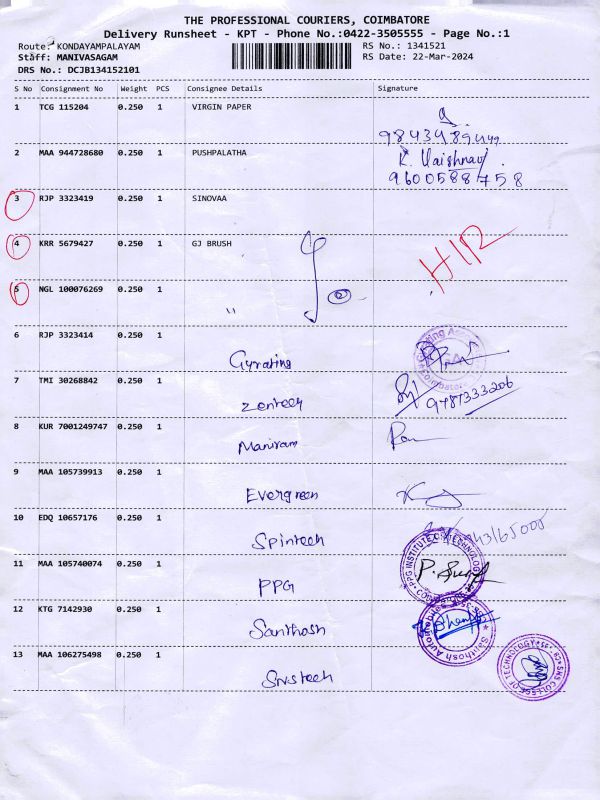 THE PROFESSIONAL COURIERS, COIMBATORE
Delivery Runsheet - KPT - Phone No.:0422-3505555 - Page No.:1
Route: KONDAYAMPALAYAM
RS No.: 1341521
Staff: MANIVASAGAM
RS Date: 22-Mar-2024
DRS No.: DCJB134152101
S No Consignment No Weight PCS Consignee Details Signature
1 TCG 115204 0.250 1 VIRGIN PAPER
9843489449
2 MAA 944728680 0.250 1 PUSHPALATHA K. Vaishnavi
9600588758
3 RJP 3323419 0.250 1 SINOVAA
4 KRR 5679427 0.250 1 GJ BRUSH
HIR
5 NGL 100076269 0.250 1 "
6 RJP 3323414 0.250 1 Gyrating
7 TMI 30268842 0.250 1 Zentech 9787333206
8 KUR 7001249747 0.250 1 Maniram
9 MAA 105739913 0.250 1 Evergreen
10 EDQ 10657176 0.250 1 Spintech
11 MAA 105740074 0.250 1 PPG
PPG INSTITUTE OF TECHNOLOGY
12 KTG 7142930 0.250 1 Santhosh
Santhosh Automobiles
13 MAA 106275498 0.250 1 Snstech
SNS COLLEGE OF TECHNOLOGY